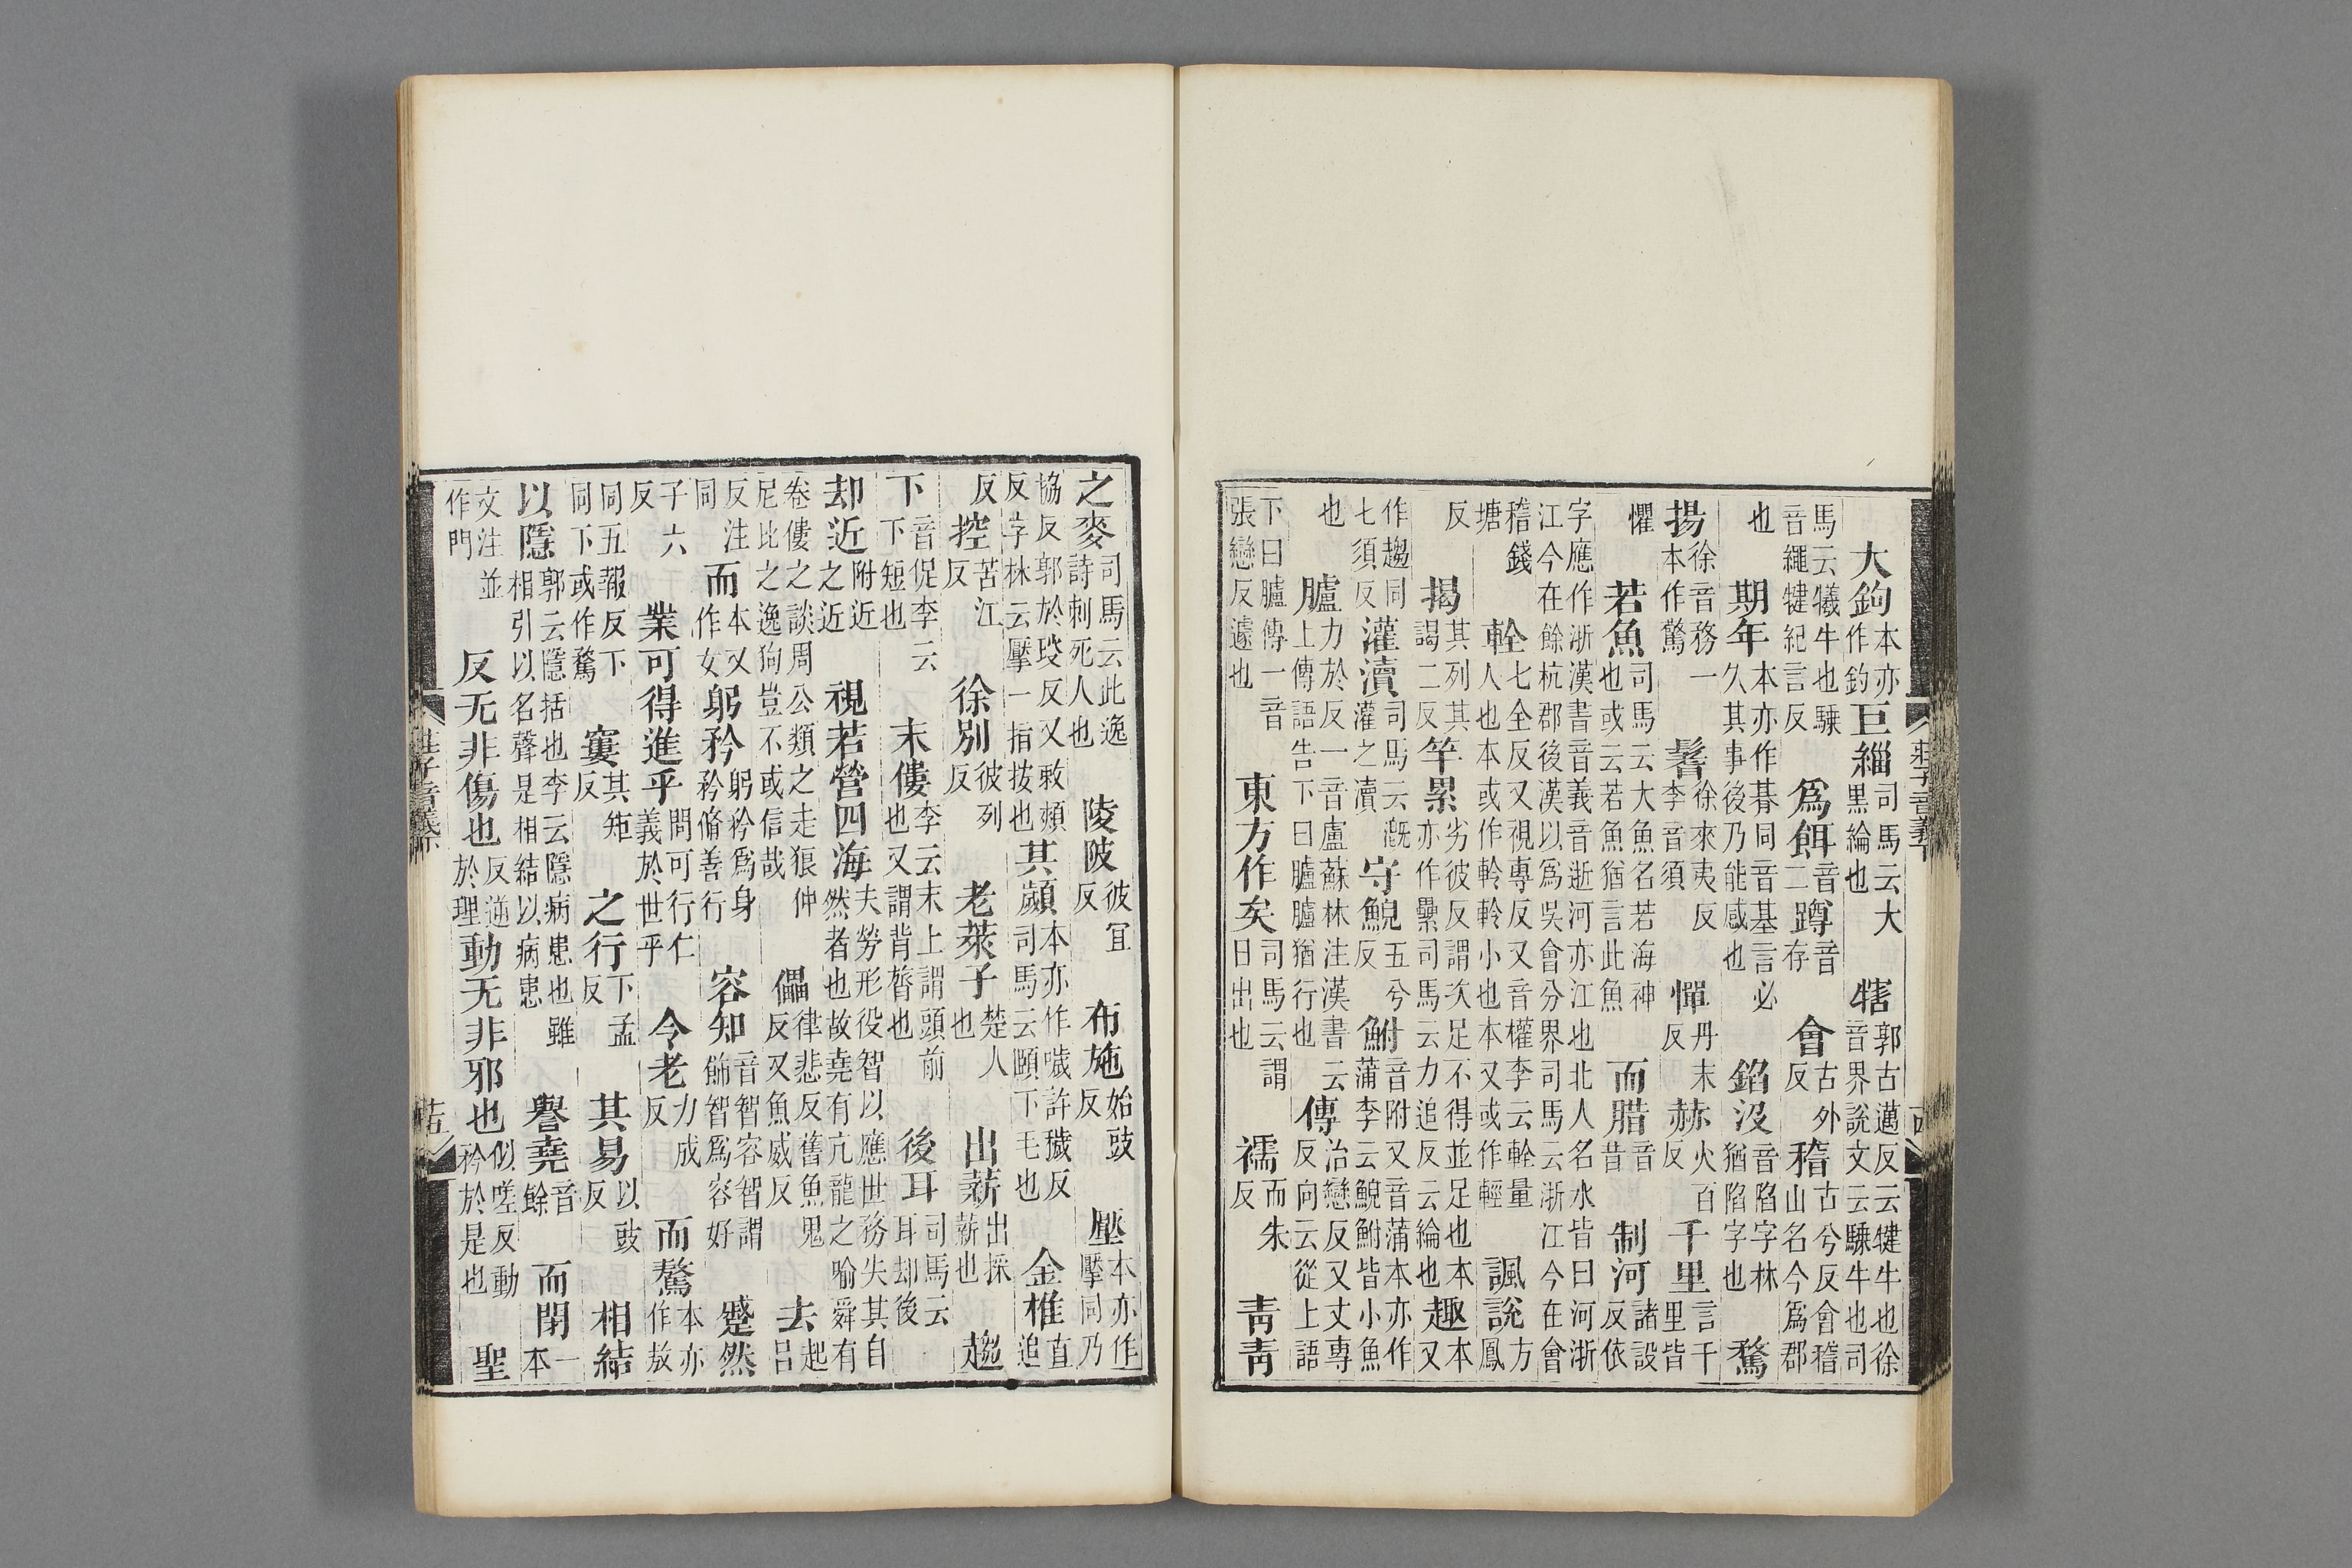 莊子音義下
大鉤本亦作釣巨緇司馬云大黑綸也犗郭古邁反云犍牛也徐音界說文云騬牛也司
馬云犧牛也騬音繩犍紀言反爲餌音二蹲音存會古外反稽古兮反會稽山名今爲郡
也期年本亦作朞同音基言必久其事後乃能感也錎没音陷字林猶陷字也騖
揚徐音務一本作驚鬐徐來夷反李音須憚丹末反赫火百反千里言千里皆
懼若魚司馬云大魚名若海神也或云若魚猶言此魚而腊音昔制河諸設反依
字應作浙漢書音義音逝河亦江也北人名水皆曰河浙江今在餘杭郡後漢以爲吳會分界司馬云浙江今在會
稽錢塘輇七全反又視專反又音權李云輇量人也本或作軨軨小也本又或作輕諷說方鳳
反揭其列其謁二反竿累劣彼反謂次足不得並足也本亦作纍司馬云力追反云綸也趣本又
作趨同七須反灌瀆司馬云溉灌之瀆守鯢五兮反鮒音附又音蒲本亦作蒲李云鯢鮒皆小魚
也臚力於反一音盧蘇林注漢書云上傳語告下曰臚臚猶行也傳治戀反又丈專反向云從上語
下曰臚傳一音張戀反遽也東方作矣司馬云謂日出也襦而朱反青青
之麥司馬云此逸詩刺死人也陵陂彼冝反布施始豉反壓本亦作擪同乃
協反郭於琰反又敕頰反字林云擪一指拔也其顪本亦作噦許穢反司馬云頤下毛也金椎直追
反控苦江反徐別彼列反老萊子楚人也出薪出採薪也趨
下音促李云下短也末僂李云末上謂頭前也又謂背膂也後耳司馬云耳却後
却近附近之近視若營四海夫勞形役智以應世務失其自然者也故堯有亢龍之喻舜有
卷僂之談周公類之走狼仲尼比之逸狗豈不或信哉儡律悲反舊魚鬼反又魚威反去起呂
反注同而本又作女躬矜躬矜爲身矜脩善行容知音智容智謂飾智爲容好蹙然
子六反業可得進乎問可行仁義於世乎令老力成反而驁本亦作敖
同五報反下同下或作騖窶其矩反之行下孟反其易以豉反相結
以隱郭云隱括也李云隱病患也雖相引以名聲是相結以病患譽堯音餘而閉一本
文注並作門反无非傷也反逆於理動无非邪也似嗟反動矜於是也聖
莊子音義下